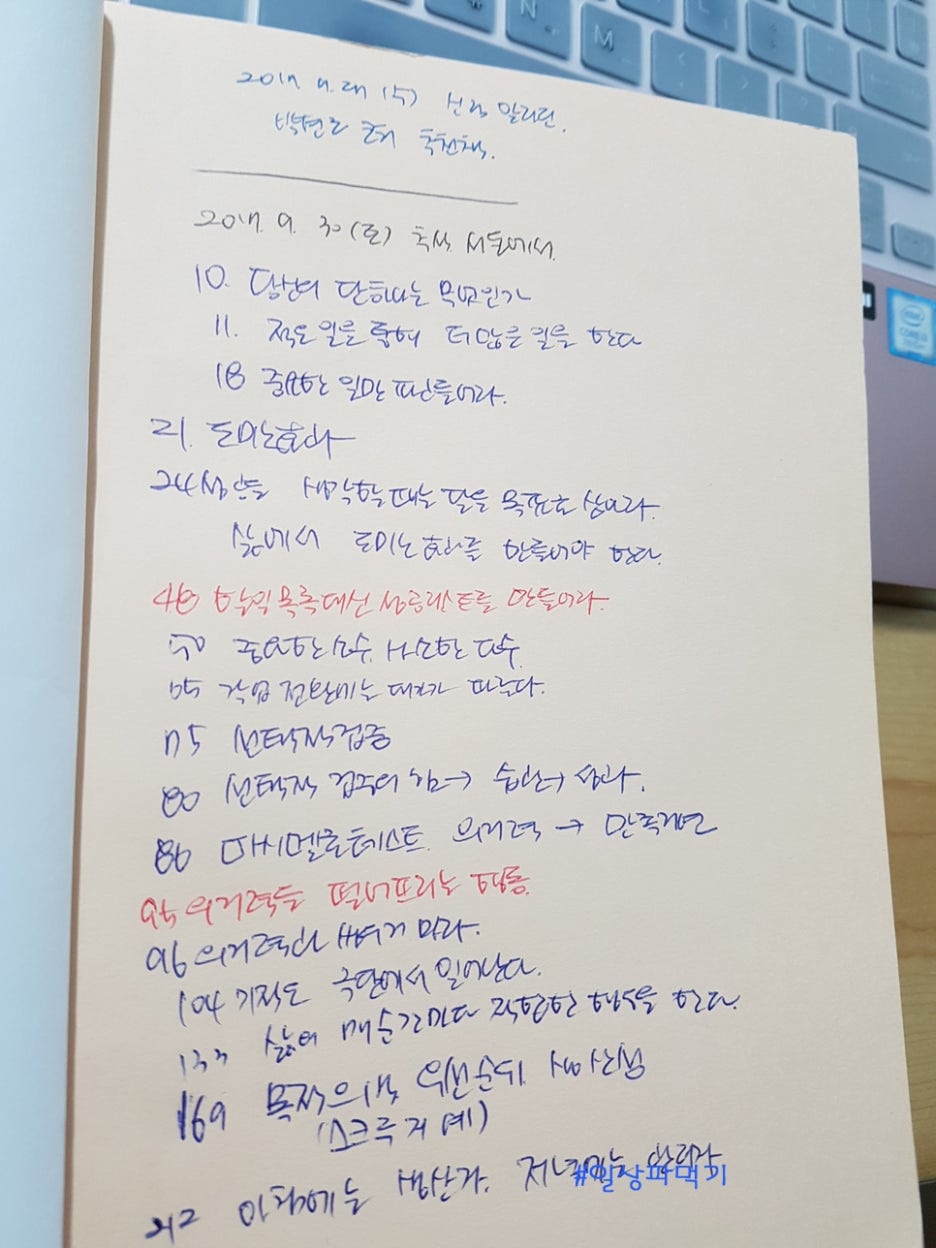 N
M
2017. 9. 30 (토) 서울에서
10. 당신의 단 하나는 무엇인가
11. 적은 일을 통해 더 많은 일을 한다
18 중요한 일만 파고들어라.
21. 도미노효과
24 성공을 생각할때는 달을 목표로 삼아라.
삶에서 도미노 효과를 만들어야 한다.
48 할일목록대신 성공리스트를 만들어라.
50 중요한 소수. 사소한 다수.
65 작업 전환에는 대가가 따른다.
75 선택적집중
80 선택적 집중의 힘 → 습관 → 성과.
86 마시멜로테스트. 의지력 → 만족지연
95 의지력을 떨어뜨리는 행동.
96 의지력과 싸우지 마라.
104 기적은 극단에서 일어난다.
133 삶의 매순간마다 적합한 행동을 한다.
169 목적의식 우선순위 생산성
(스크루지 예)
212 아침에는 생산자. 저녁에는 관리자
#일상파먹기
intel
CORE